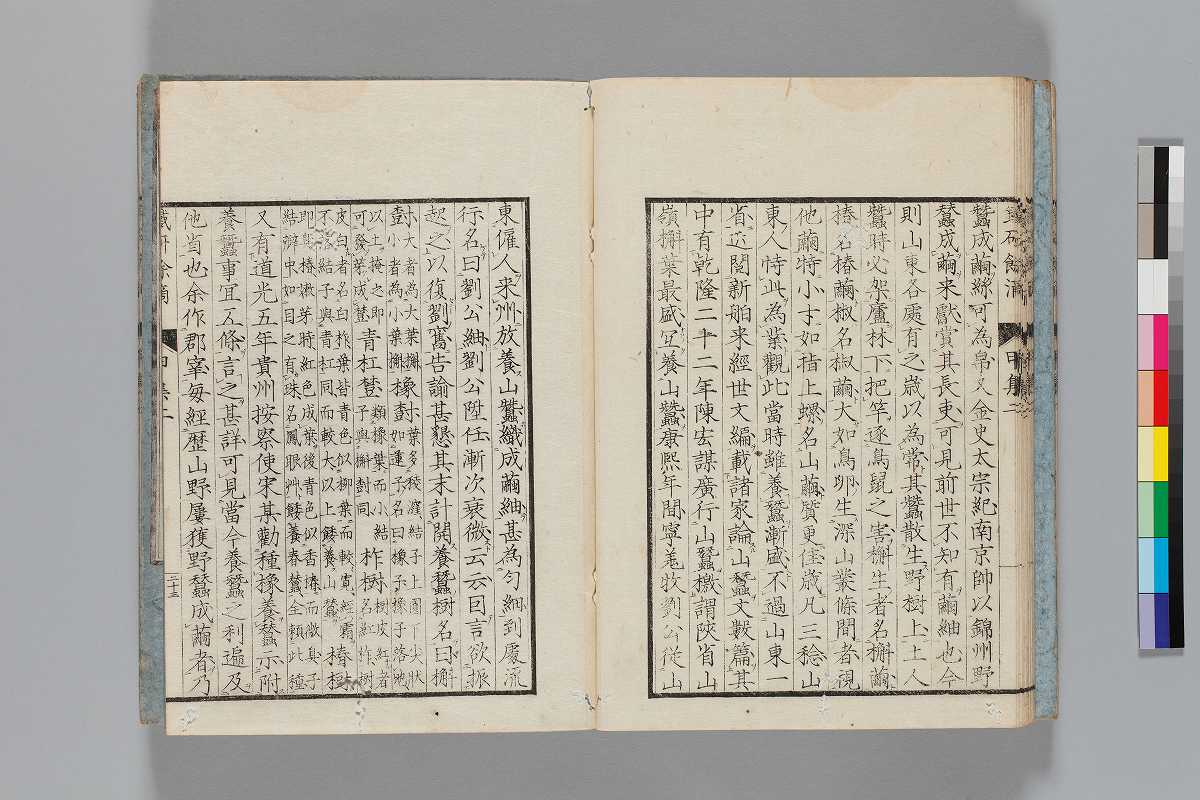 蠶成繭絲可為帛又金史太宗紀南京帥以錦州野
蠶成繭来獻賞其長吏可見前世不知有繭紬也今
則山東各處有之歳以為常其蠶散生野樹上土人
蠶時必架廬林下把竿逐鳥鼠之害槲生者名槲繭
椿名椿繭椒名椒繭大如鳥卵生深山叢條間者視
他繭特小才如指上螺名山繭質更佳歳凡三稔山
東人恃此為業觀此當時雖養蠶漸盛不過山東一
省近閲新舶来經世文編載諸家論山蠶文數篇其
中有乾隆二十二年陳宏謀廣行山蠶檄謂陝省山
嶺槲葉最盛宜養山蠶康熙年間寧羌牧劉公從山
東僱人来州放養山蠶織成繭紬甚為匀細到處流
行名曰劉公紬劉公陞任漸次衰微云云曰言欲振
起之以復劉舊告諭甚懇其末計開養蠶樹名曰槲
樹大者為大葉槲小者為小葉槲橡樹葉多稜窪結子上圓下尖狀如蓮子名曰橡子橡子落地
以土掩之即可發芽成樹青杠樹類橡葉而小結子與槲樹同柞樹樹皮紅者名紅柞樹
皮白者名白柞葉皆青色似柳葉而較寛經霜不落結子與青杠同而較大以上餧養山蠶椿樹
即臭椿㵢芽時紅色成葉後青色似香椿而微臭子結瓣中如目之有珠名鳳眼艸餧養春蠶全賴此種
又有道光五年貴州按察使宋某勸種橡養蠶示附
養蠶事宜五條言之甚詳可見當今養蠶之利遍及
他省也余作郡宰毎經歴山野屢獲野蠶成繭者乃
甲集二
二十三